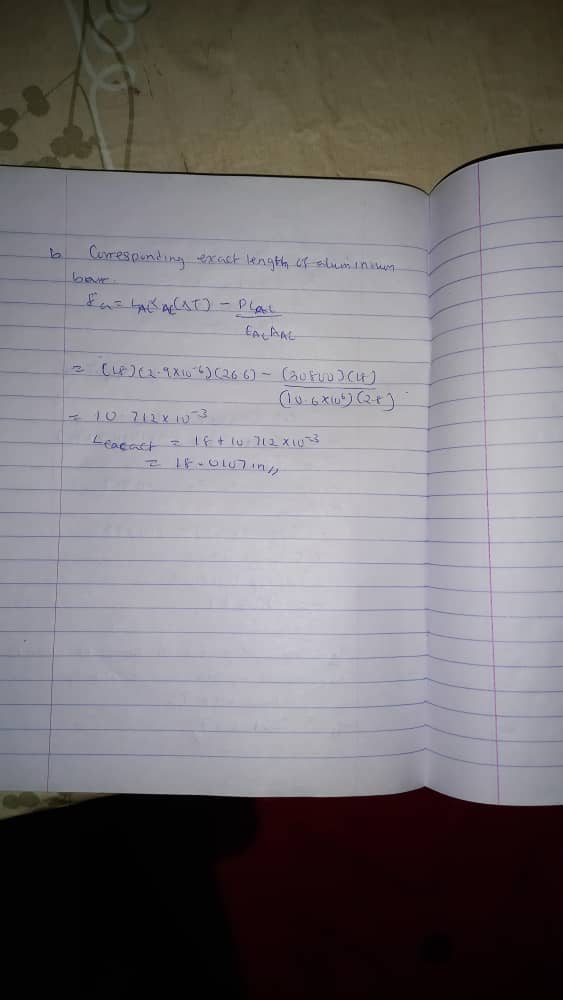 b Corresponding exact length of aluminium
bar.
δa = LALαAL(ΔT) - PLAL
EALAAL
= (18)(2.9x10-6)(266) - (30800)(18)
(10.6x106)(2.8)
= 10.712x10-3
Leaxact = 18 + 10.712x10-3
= 18.0107in,,